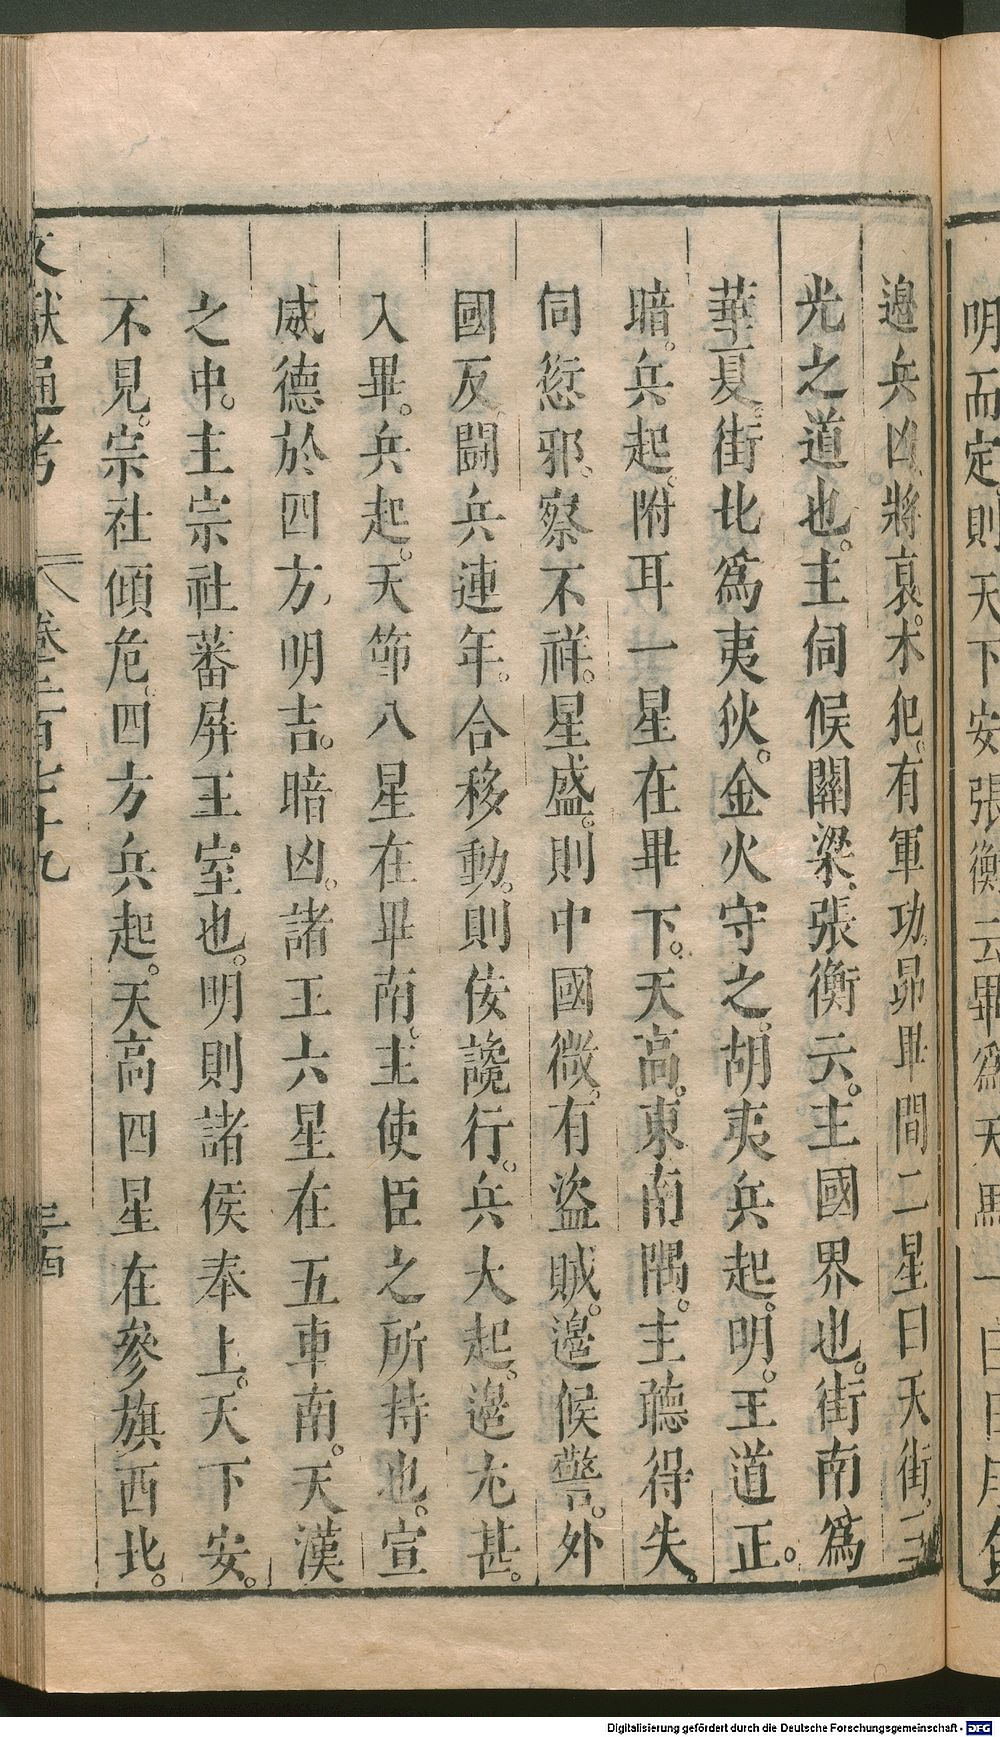 明而定則天下安張衡云畢為天馬一曰
邉兵凶。將哀。木犯。有軍功。昴畢間二星曰天街。三
光之道也。主伺候關梁。張衡云。主國界也。街南爲
華夏。街北爲夷狄。金火守之。胡夷兵起。明。王道正。
暗。兵起。附耳一星在畢下。天高。東南隅。主聽得失。
伺愆邪。察不祥。星盛。則中國微。有盗賊。邉候警。外
國反。鬬兵連年。合移動。則佞讒行。兵大起。邉尤甚。
入畢。兵起。天節八星在畢南。主使臣之所持也。宣
威德於四方。明吉。暗凶。諸王六星在五車南。天漢
之中。主宗社蕃屏王室也。明則諸侯奉上。天下安。
不見。宗社傾危。四方兵起。天高四星在參旗西北。
文獻通考 卷二百七十九
Digitalisierung gefördert durch die Deutsche Forschungsgemeinschaft - DFG